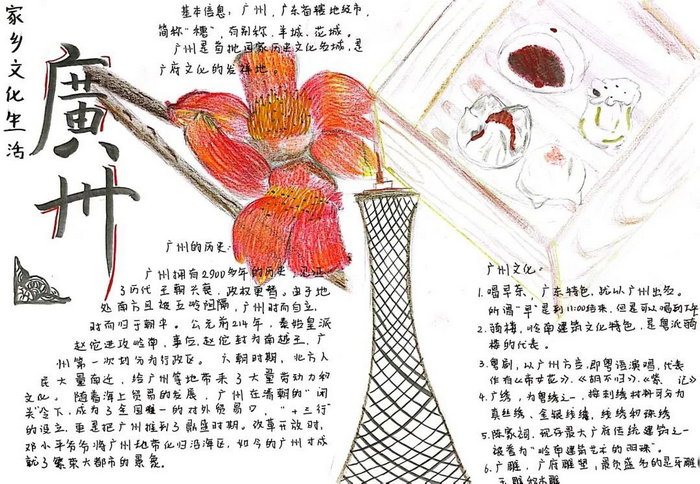 家乡文化生活
廣州
基本信息：广州，广东省省会城市，
简称"穗"，有别称，羊城，花城。
广州是首批国家历史文化名城，是
广府文化的发祥地。
广州的历史：
广州拥有2200多年的历史
了历代王朝兴衰，政权更替。由于地
处南方且被五岭阻隔，广州时而自立，
时而归于朝中。公元前214年，秦始皇派
赵佗进攻岭南，事后，赵佗封为南越王，广
州第一次划分为行政区。六朝时期，北方人
民大量南迁，给广州等地带来了大量劳动力和
文化。随着海上贸易的发展，广州在清朝的"闭
关"令下，成为了全国唯一的对外贸易口，"十三行"
的设立，更是把广州推到了鼎盛时期。改革开放时，
邓小平爷爷将广州地带化归沿海区，如今的广州才成
就了繁荣大都市的景象。
广州文化。
1.唱早茶，广东特色，尤以广州出名。
所谓"早"是到11:00结束，但是可以喝到下午
2.骑楼，岭南建筑文化特色，是粤派骑
楼的代表。
3.粤剧，以广州方言，即粤语演唱，代表
作有《帝女花》、《胡不归》、《紫 记》
4.广绣，为粤绣之一，按刺绣材料可分为
真丝绣，金银线绣，线绣和珠绣
5.陈家祠，现存最大广府传统建筑之一
被誉为"岭南建筑艺术的明珠"。
6.广雕，广府雕塑，最负盛名的是牙雕
玉雕和木雕